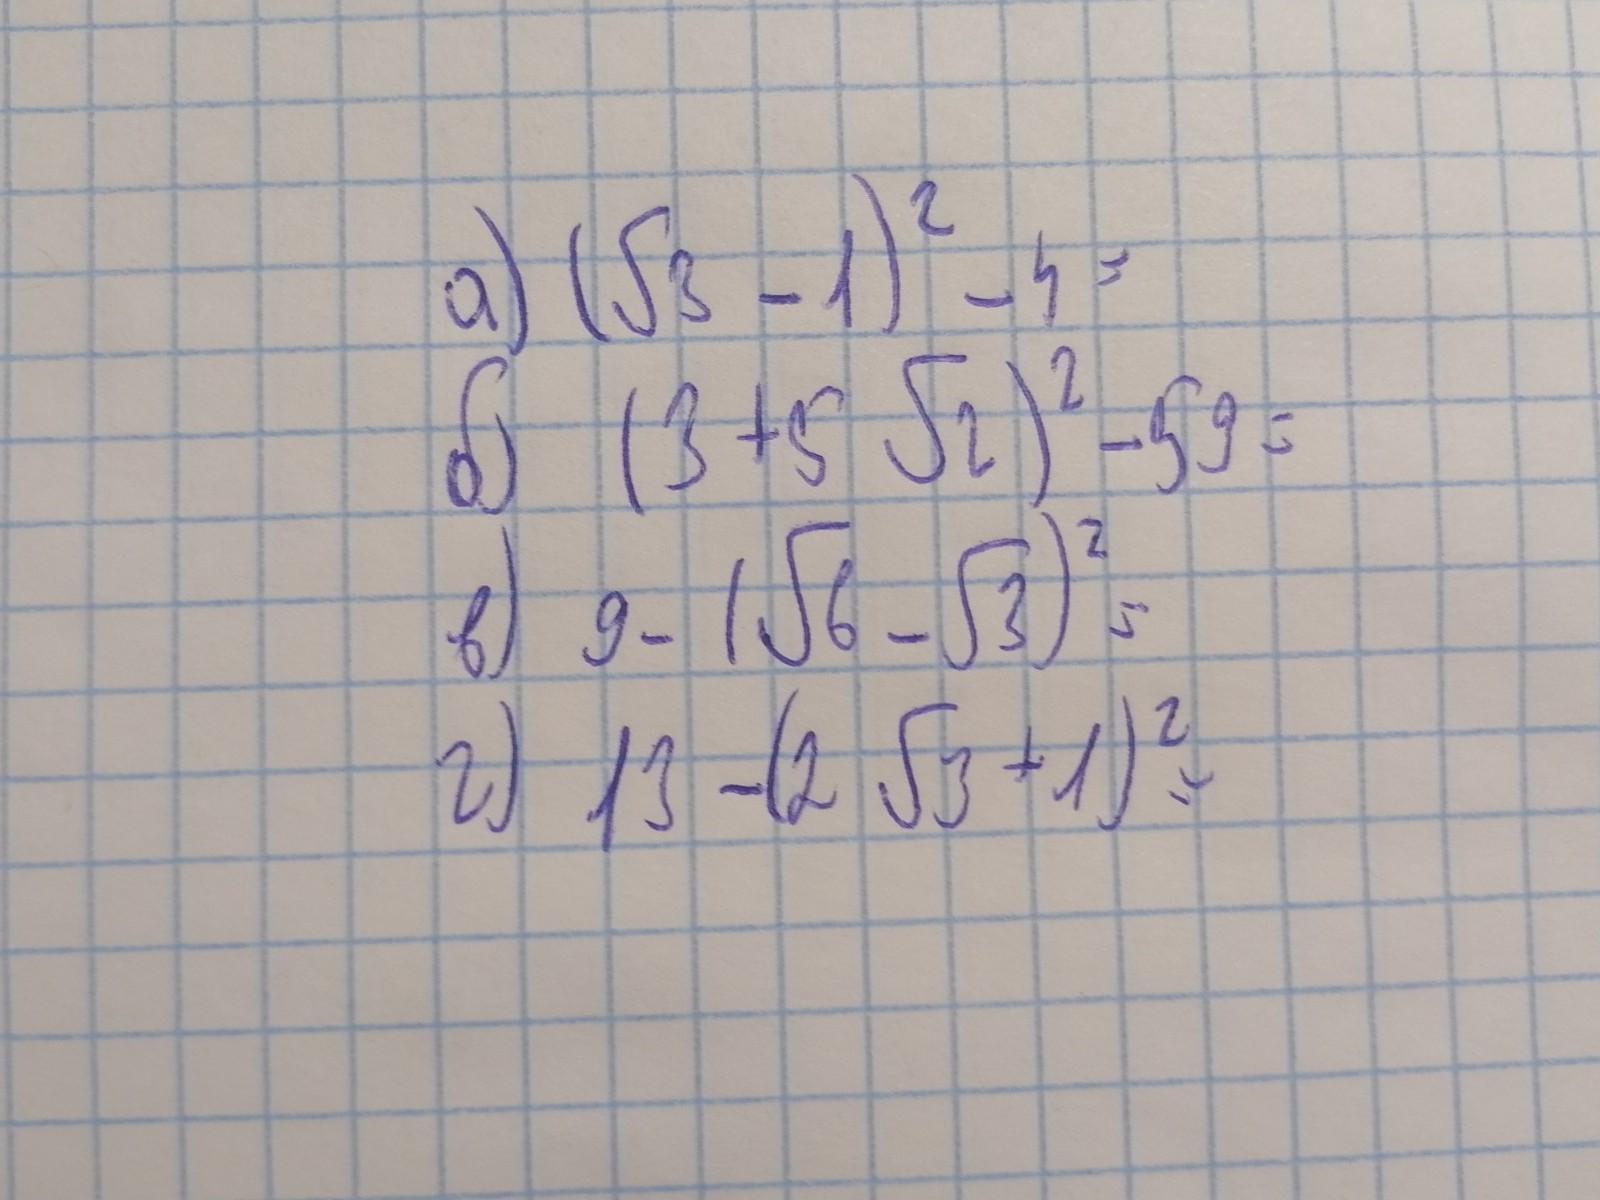 а) (√3 - 1)² - 4 =
б) (3 + 5√2)² - 59 =
в) 9 - (√6 - √3)² =
г) 13 - (2√3 + 1)² =